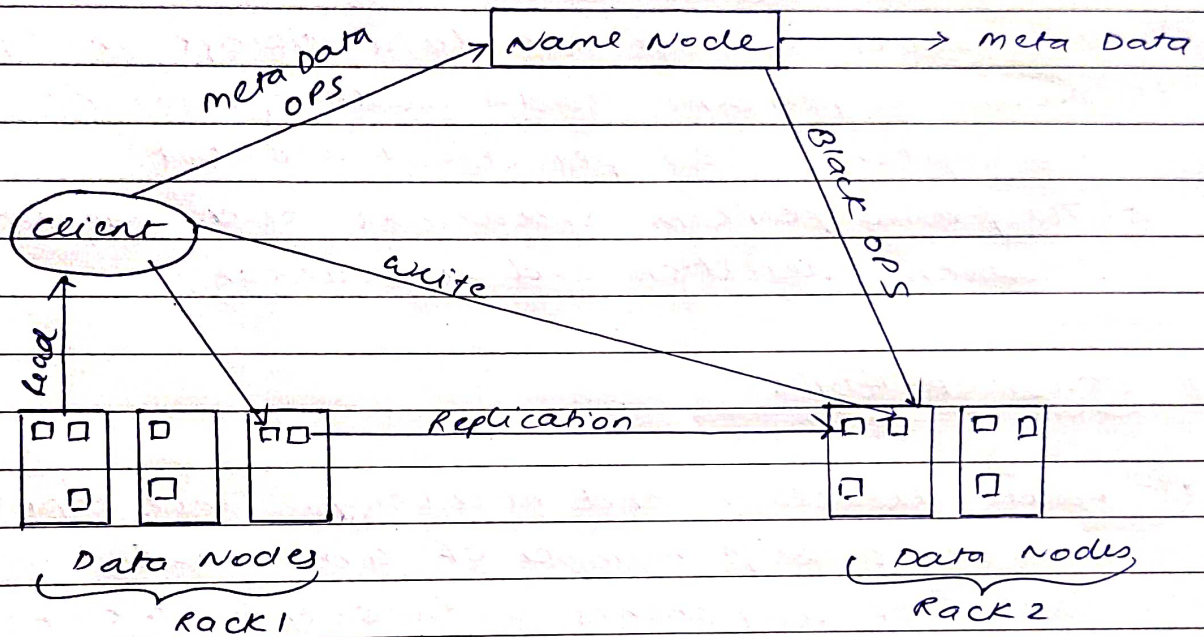 Name Node
meta Data
meta Data
OPS
Black OPS
Client
write
Read
Replication
Data Nodes
Data Nodes
Rack 1
Rack 2